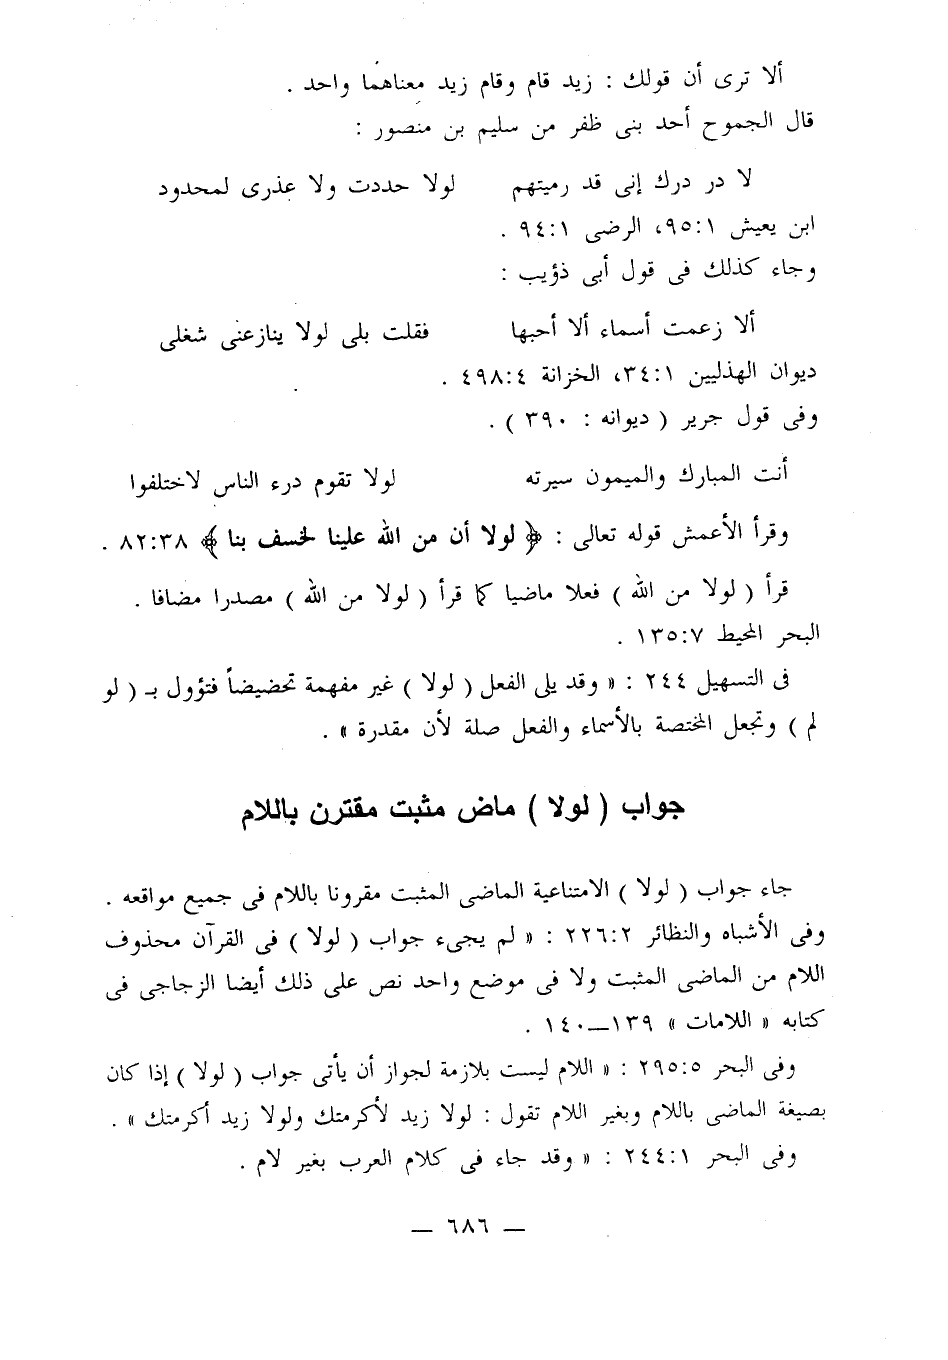 ألا ترى أن قولك : زيد قام وقام زيد معناهما واحد .
قال الجموح أحد بنى ظفر من سليم بن منصور :
لا در درك إنى قد رميتهم لولا حددت ولا عذرى لمحدود
ابن يعيش ٩٥:١، الرضى ٩٤:١ .
وجاء كذلك فى قول أبى ذؤيب :
ألا زعمت أسماء ألا أحبها فقلت بلى لولا ينازعنى شغلى
ديوان الهذليين ٣٤:١، الخزانة ٤٩٨:٤ .
وفى قول جرير ( ديوانه : ٣٩٠ ) .
أنت المبارك والميمون سيرته لولا تقوم درء الناس لاختلفوا
وقرأ الأعمش قوله تعالى : ﴿ لولا أن من الله علينا لخسف بنا ﴾ ٨٢:٣٨ .
قرأ ( لولا من الله ) فعلا ماضيا كما قرأ ( لولا من الله ) مصدرا مضافا .
البحر المحيط ١٣٥:٧ .
فى التسهيل ٢٤٤ : « وقد يلى الفعل ( لولا ) غير مفهمة تحضيضاً فتؤول بـ ( لو
لم ) وتجعل المختصة بالأسماء والفعل صلة لأن مقدرة » .
جواب ( لولا ) ماض مثبت مقترن باللام
جاء جواب ( لولا ) الامتناعية الماضى المثبت مقرونا باللام فى جميع مواقعه .
وفى الأشباه والنظائر ٢٢٦:٢ : « لم يجىء جواب ( لولا ) فى القرآن محذوف
اللام من الماضى المثبت ولا فى موضع واحد نص على ذلك أيضا الزجاجى فى
كتابه « اللامات » ١٣٩ــ١٤٠ .
وفى البحر ٢٩٥:٥ : « اللام ليست بلازمة لجواز أن يأتى جواب ( لولا ) إذا كان
بصيغة الماضى باللام وبغير اللام تقول : لولا زيد لأكرمتك ولولا زيد أكرمتك » .
وفى البحر ٢٤٤:١ : « وقد جاء فى كلام العرب بغير لام .
— ٦٨٦ —